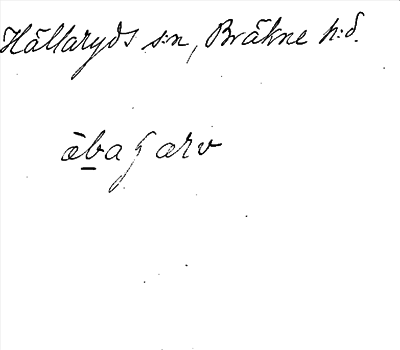 Hällaryds s:n, Bräkne h:d.
äbagarv